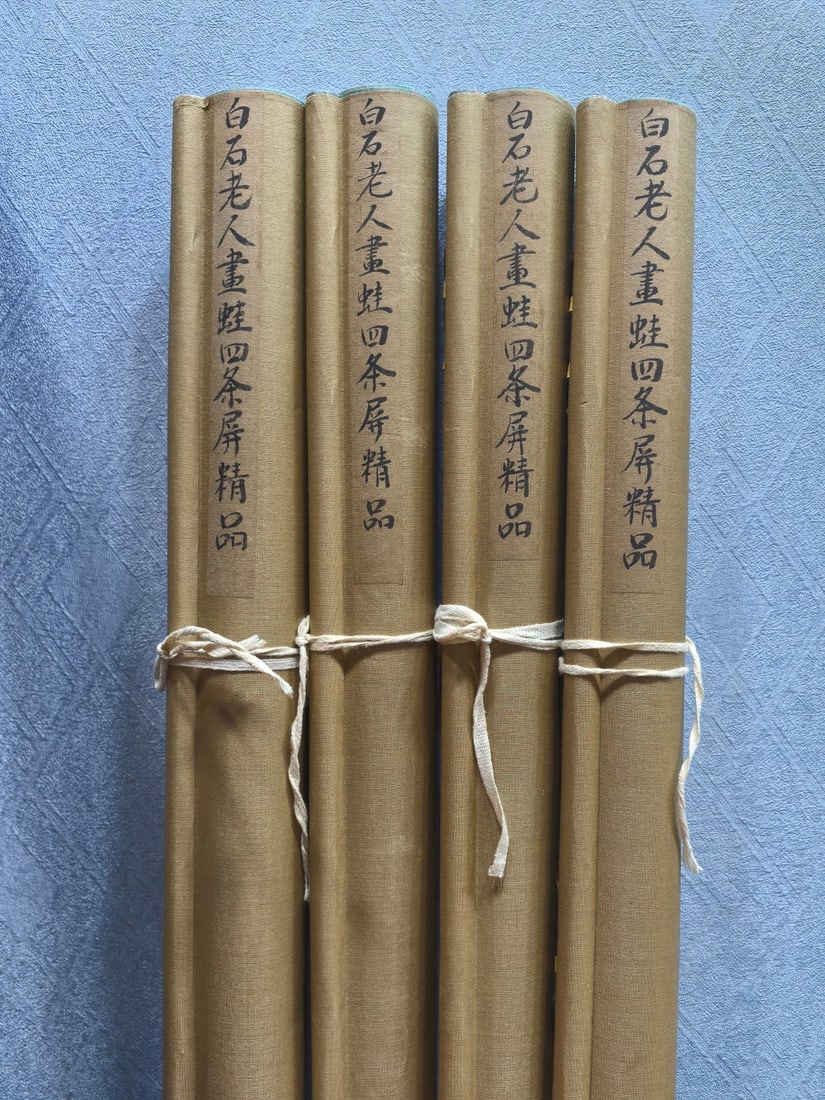 白石老人畫蛙四条屏精品
白石老人畫蛙四条屏精品
白石老人畫蛙四条屏精品
白石老人畫蛙四条屏精品